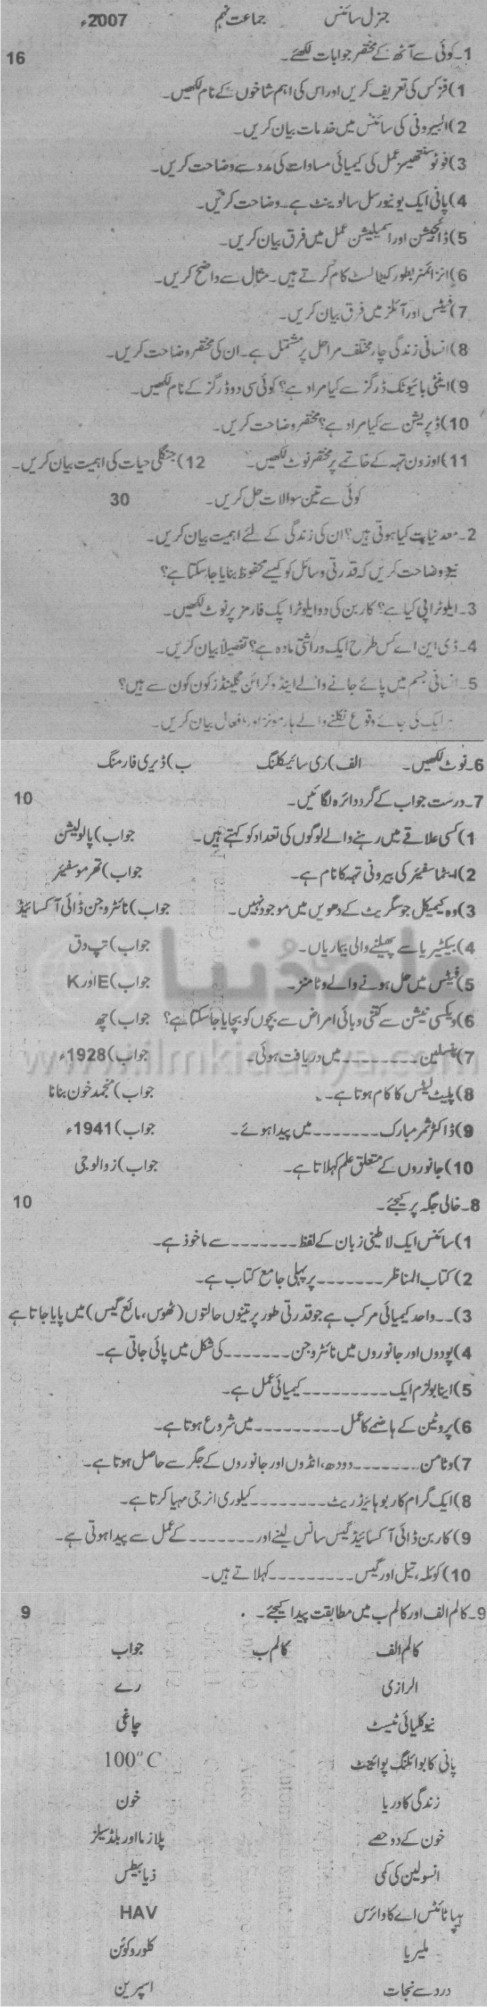 جنرل سائنس جماعت نہم 2007ء
1۔ کوئی سے آٹھ کے مختصر جوابات لکھئے۔ 16
1) فزکس کی تعریف کریں اور اس کی اہم شاخوں کے نام لکھیں۔
2) البیرونی کی سائنس میں خدمات بیان کریں۔
3) فوٹو سنتھیسز عمل کی کیمیائی مساوات کی مدد سے وضاحت کریں۔
4) پانی ایک یونیورسل سالوینٹ ہے۔ وضاحت کریں۔
5) ڈائجیشن اور اسمیلیشن عمل میں فرق بیان کریں۔
6) انزائمز بطور کیٹالسٹ کام کرتے ہیں۔ مثال سے واضح کریں۔
7) فیٹس اور آئلز میں فرق بیان کریں۔
8) انسانی زندگی چار مختلف مراحل پر مشتمل ہے۔ ان کی مختصر وضاحت کریں۔
9) اینٹی بائیوٹک ڈرگز سے کیا مراد ہے؟ کوئی سی دو ڈرگز کے نام لکھیں۔
10) ڈپریشن سے کیا مراد ہے؟ مختصر وضاحت کریں۔
11) اوزون تہہ کے خاتمے پر مختصر نوٹ لکھیں۔ 12) جنگلی حیات کی اہمیت بیان کریں۔
کوئی سے تین سوالات حل کریں۔ 30
2۔ معدنیات کیا ہوتی ہیں؟ ان کی زندگی کے لئے اہمیت بیان کریں۔
نیز وضاحت کریں کہ قدرتی وسائل کو کیسے محفوظ بنایا جا سکتا ہے؟
3۔ ایلوٹراپی کیا ہے؟ کاربن کی دو ایلوٹراپک فارمز پر نوٹ لکھیں۔
4۔ ڈی این اے کس طرح ایک وراثتی مادہ ہے؟ تفصیلاً بیان کریں۔
5۔ انسانی جسم میں پائے جانے والے اینڈوکرائن گلینڈز کون کون سے ہیں؟
ایک کی جائے وقوع نکلنے والے ہارمونز اور افعال بیان کریں۔
6۔ نوٹ لکھیں۔ الف) ری سائیکلنگ ب) ڈیری فارمنگ
7۔ درست جواب کے گرد دائرہ لگائیں۔ 10
1) کسی علاقے میں رہنے والے لوگوں کی تعداد کو کہتے ہیں۔ جواب) پاپولیشن
2) ایٹماسفیئر کی بیرونی تہہ کا نام ہے۔ جواب) تھرموسفیئر
3) وہ کیمیکل جو سگریٹ کے دھویں میں موجود نہیں۔ جواب) نائٹروجن ڈائی آکسائیڈ
4) بیکٹیریا سے پھیلنے والی بیماریاں۔ جواب) تپ دق
5) فیٹس میں حل ہونے والے وٹامنز۔ جواب) E اور K
6) ویکسی نیشن سے کتنی وبائی امراض سے بچوں کو بچایا جا سکتا ہے؟ جواب) چھ
7) پنسلین ۔۔۔۔۔۔۔۔ میں دریافت ہوئی۔ جواب) 1928ء
8) پلیٹ لیٹس کا کام ہوتا ہے۔ جواب) منجمد خون بنانا
9) ڈاکٹر ثمر مبارک ۔۔۔۔۔۔۔ میں پیدا ہوئے۔ جواب) 1941ء
10) جانوروں کے متعلق علم کہلاتا ہے۔ جواب) زوالوجی
علم کی دنیا
www.ilmkidunya.com
8۔ خالی جگہ پر کیجئے۔ 10
1) سائنس ایک لاطینی زبان کے لفظ ۔۔۔۔۔۔۔ سے ماخوذ ہے۔
2) کتاب المناظر ۔۔۔۔۔۔۔ پر پہلی جامع کتاب ہے۔
3) ۔۔ واحد کیمیائی مرکب ہے جو قدرتی طور پر تینوں حالتوں (ٹھوس، مائع گیس) میں پایا جاتا ہے
4) پودوں اور جانوروں میں نائٹروجن ۔۔۔۔۔۔۔ کی شکل میں پائی جاتی ہے۔
5) اینابولزم ایک ۔۔۔۔۔۔۔۔۔ کیمیائی عمل ہے۔
6) پروٹین کے ہاضمے کا عمل ۔۔۔۔۔۔۔۔۔ میں شروع ہوتا ہے۔
7) وٹامن ۔۔۔۔۔۔۔ دودھ، انڈوں اور جانوروں کے جگر سے حاصل ہوتا ہے۔
8) ایک گرام کاربوہائیڈریٹ ۔۔۔۔۔۔۔۔ کیلوری انرجی مہیا کرتا ہے۔
9) کاربن ڈائی آکسائیڈ گیس سانس لینے اور ۔۔۔۔۔۔۔ کے عمل سے پیدا ہوتی ہے۔
10) کوئلہ، تیل اور گیس ۔۔۔۔۔۔۔۔۔ کہلاتے ہیں۔
9۔ کالم الف اور کالم ب میں مطابقت پیدا کیجئے۔ 9
کالم الف کالم ب جواب
الرازی رے
نیوکلیائی ٹیسٹ چاغی
پانی کا بوائلنگ پوائنٹ 100°C
زندگی کا دریا خون
خون کے دو حصے پلازما اور بلڈ سیلز
انسولین کی کمی ذیابیطس
ہیپاٹائٹس اے کا وائرس HAV
ملیریا کلوروکوئن
درد سے نجات اسپرین